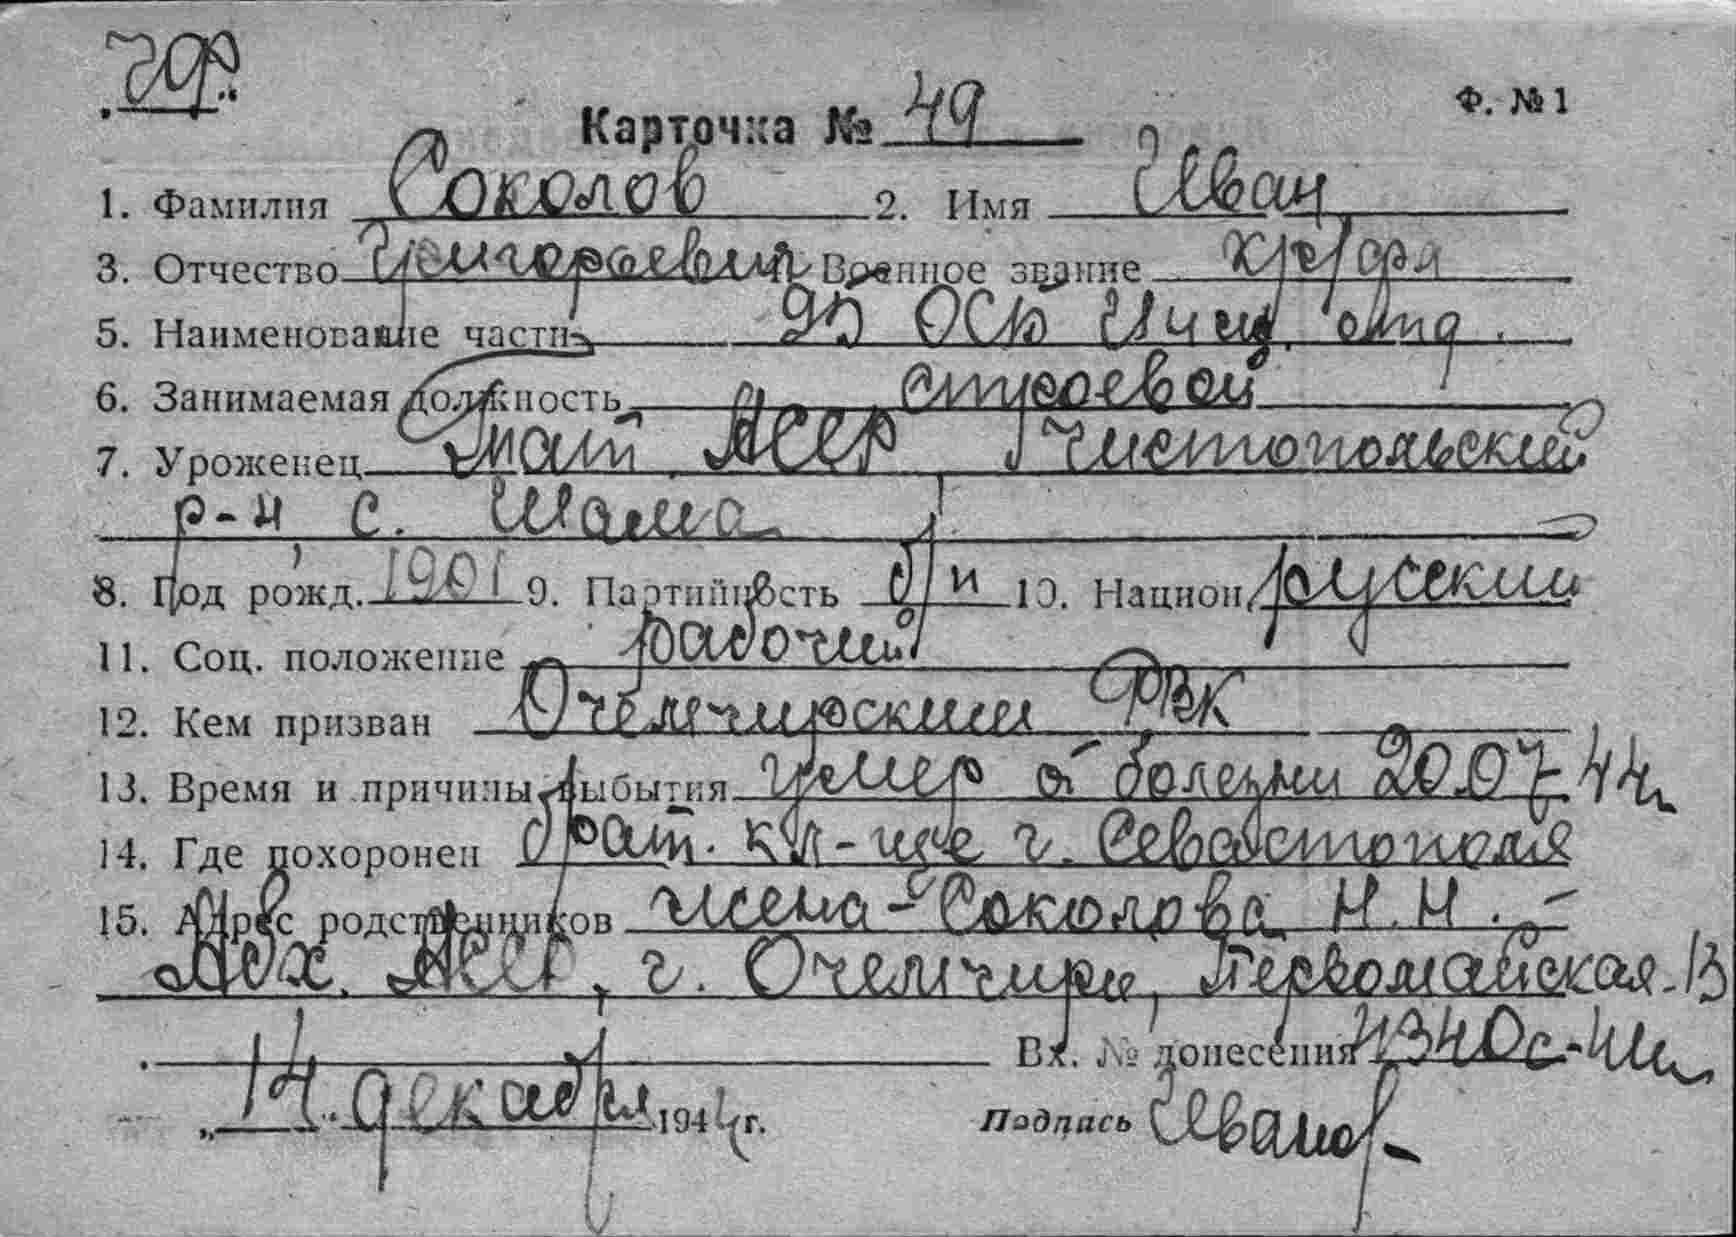 ЧФ
Ф. №1
Карточка № 49
1. Фамилия Соколов 2. Имя Иван
3. Отчество Григорьевич 4. Военное звание кр/фл
5. Наименование части 95 ОСБ Инж. отд.
6. Занимаемая должность строевой
7. Уроженец Тат. АССР, Чистопольский
р-н, с. Шама
8. Год рожд. 1901 9. Партийность б/п 10. Национ. русский
11. Соц. положение рабочий
12. Кем призван Очемчирский РВК
13. Время и причины выбытия умер от болезни 20.07.44г
14. Где похоронен брат. кл-ще г. Севастополя
15. Адрес родственников жена-Соколова Н.Н. -
Абх. АССР, г. Очемчири, Первомайская-13
Вх. № донесения
„14" декабря 1944 г. Подпись Иванов